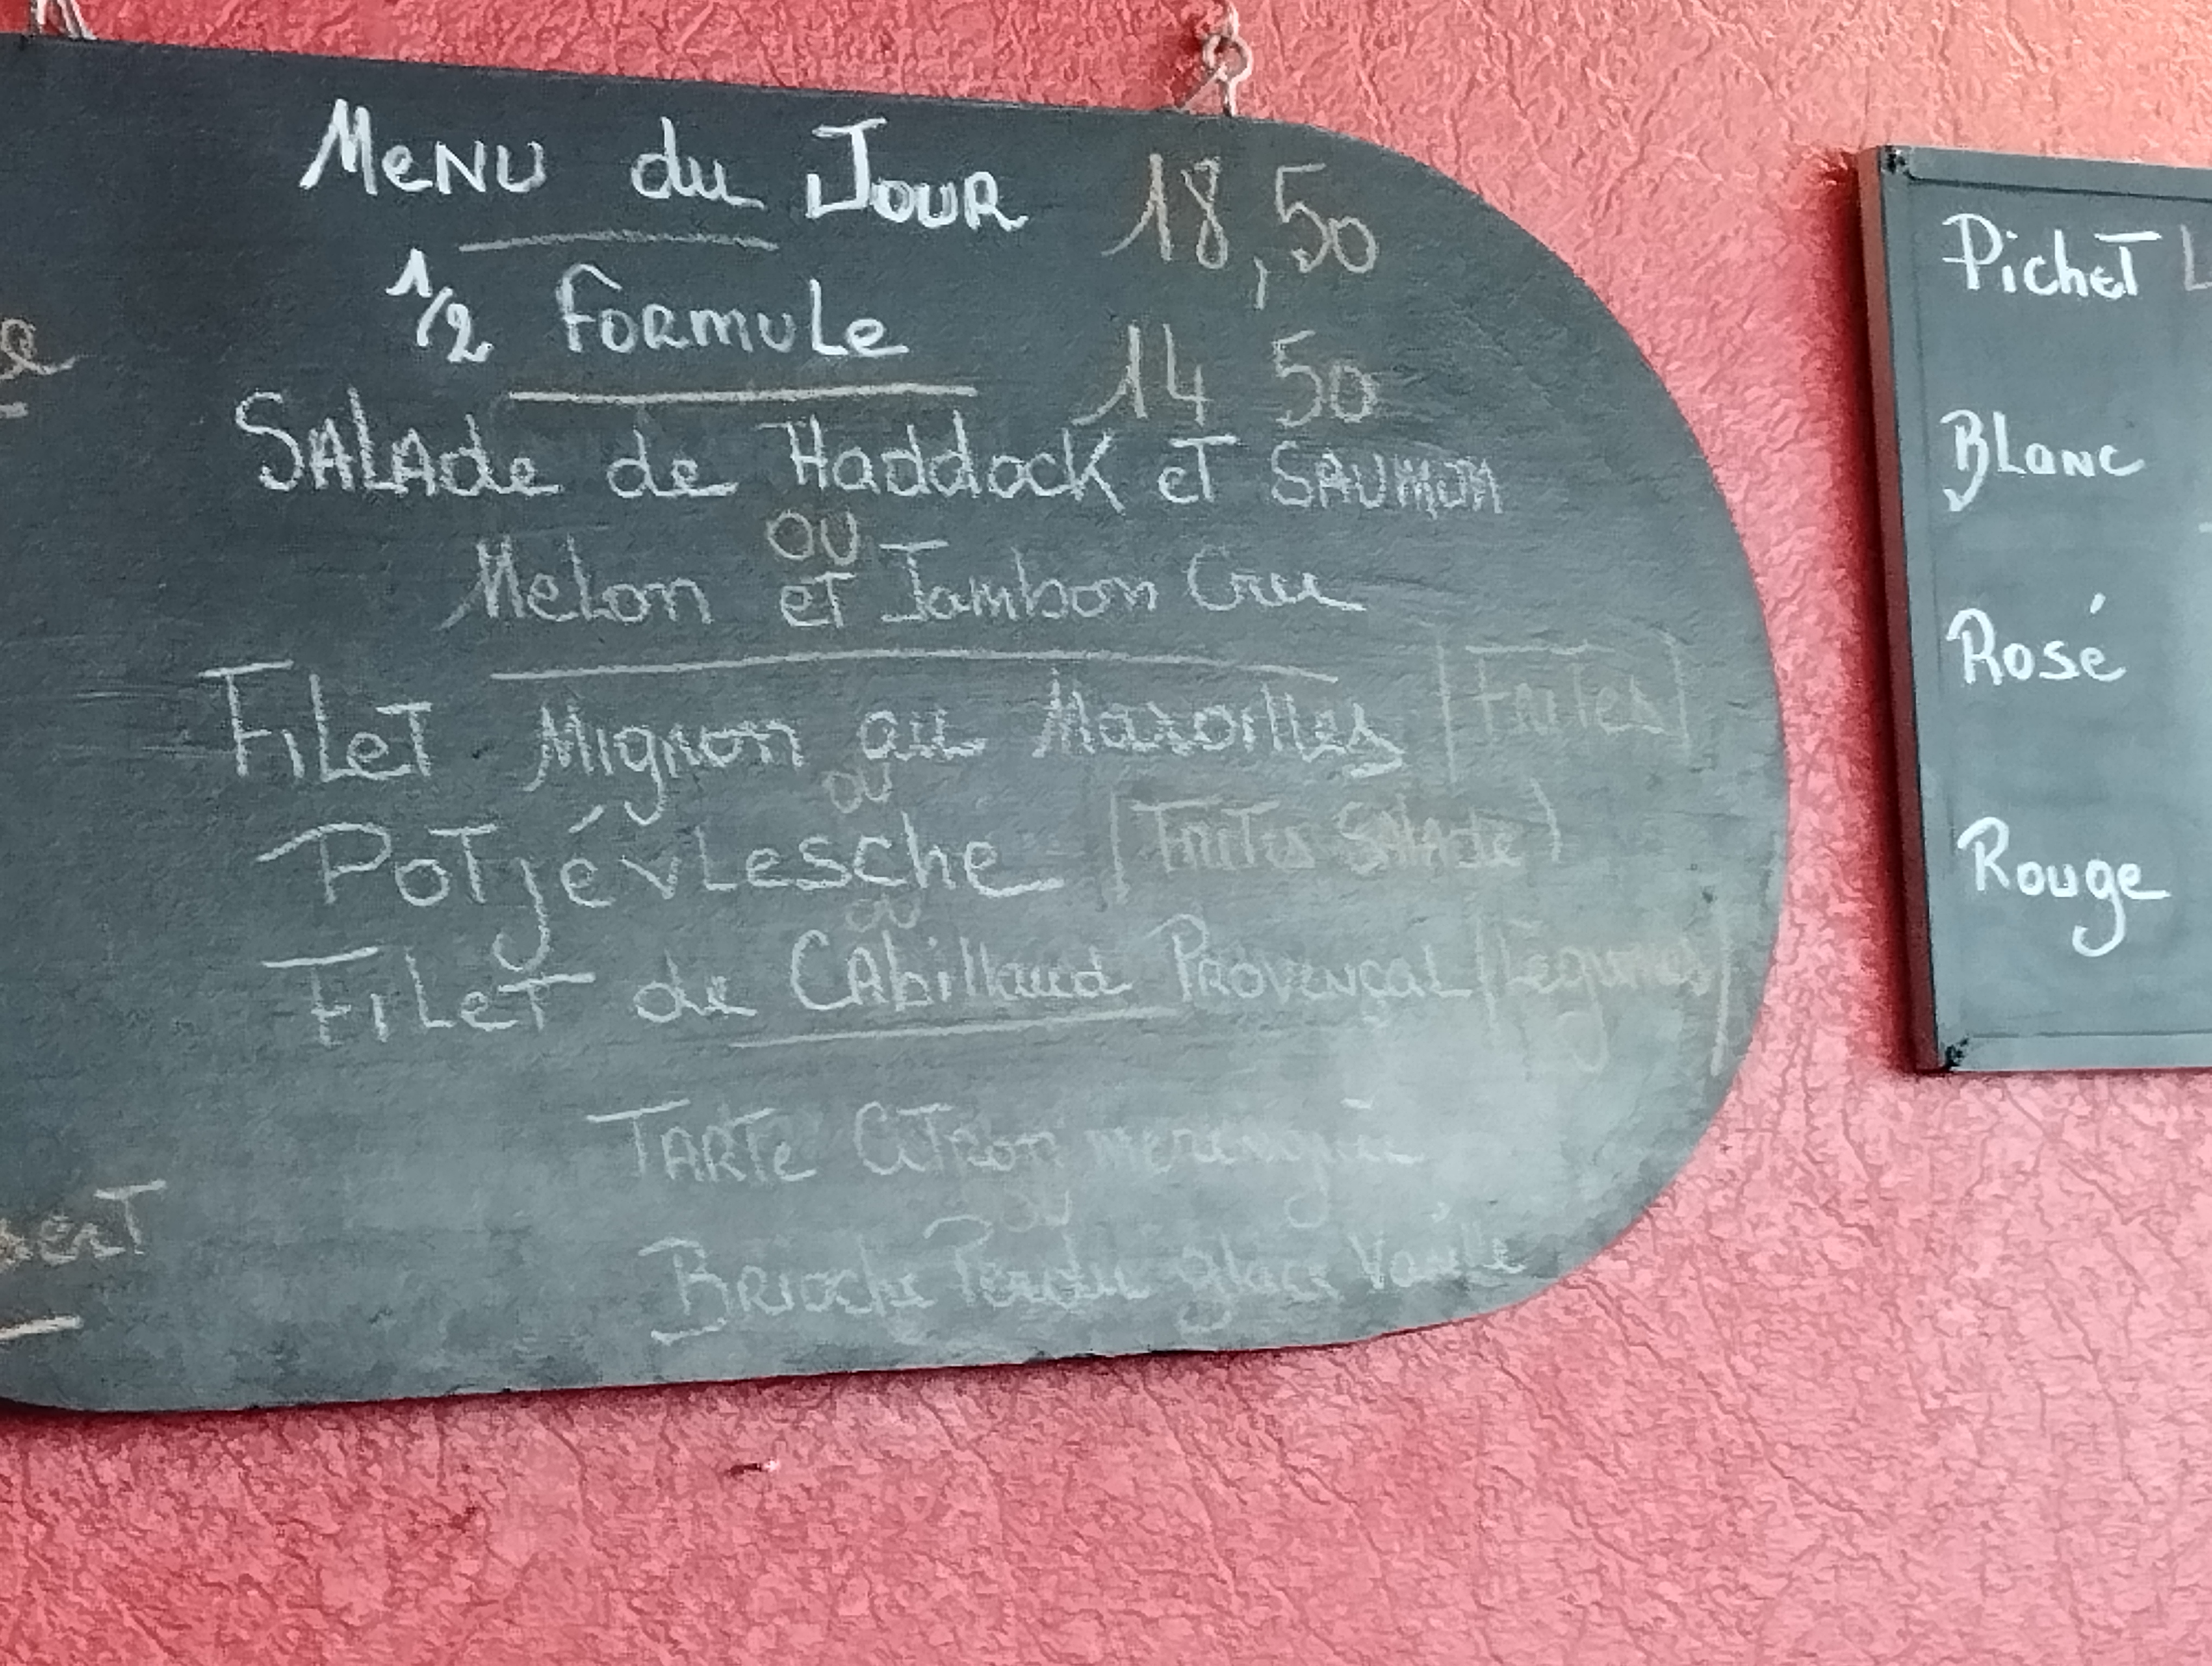 Menu du Jour 18,50
1/2 Formule 14 50
Salade de Haddock et Saumon
ou
Melon et Jambon Cru
Filet Mignon au Maroilles (Frites)
ou
Potjévlesche (Frites Salade)
ou
Filet de Cabillaud Provençal (Légumes)
Tarte Citron meringuée
ou
Brioche Perdu glace Vanille
Pichet
Blanc
Rosé
Rouge